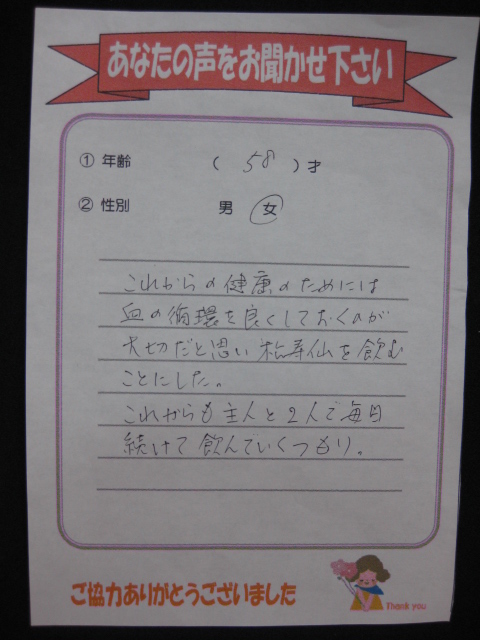 あなたの声をお聞かせ下さい
① 年齢 ( 58 ) 才
② 性別 男 女
これからの健康のためには
血の循環を良くしておくのが
大切だと思い松寿仙を飲む
ことにした。
これからも主人と2人で毎日
続けて飲んでいくつもり。
ご協力ありがとうございました
Thank you